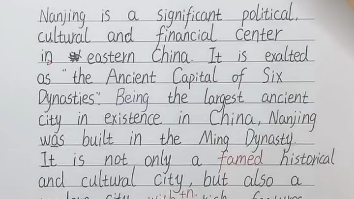 Nanjing is a significant political,
cultural and financial center
in eastern China. It is exalted
as "the Ancient Capital of Six
Dynasties". Being the largest ancient
city in existence in China, Nanjing
was built in the Ming Dynasty.
It is not only a famed historical
and cultural city, but also a
city with